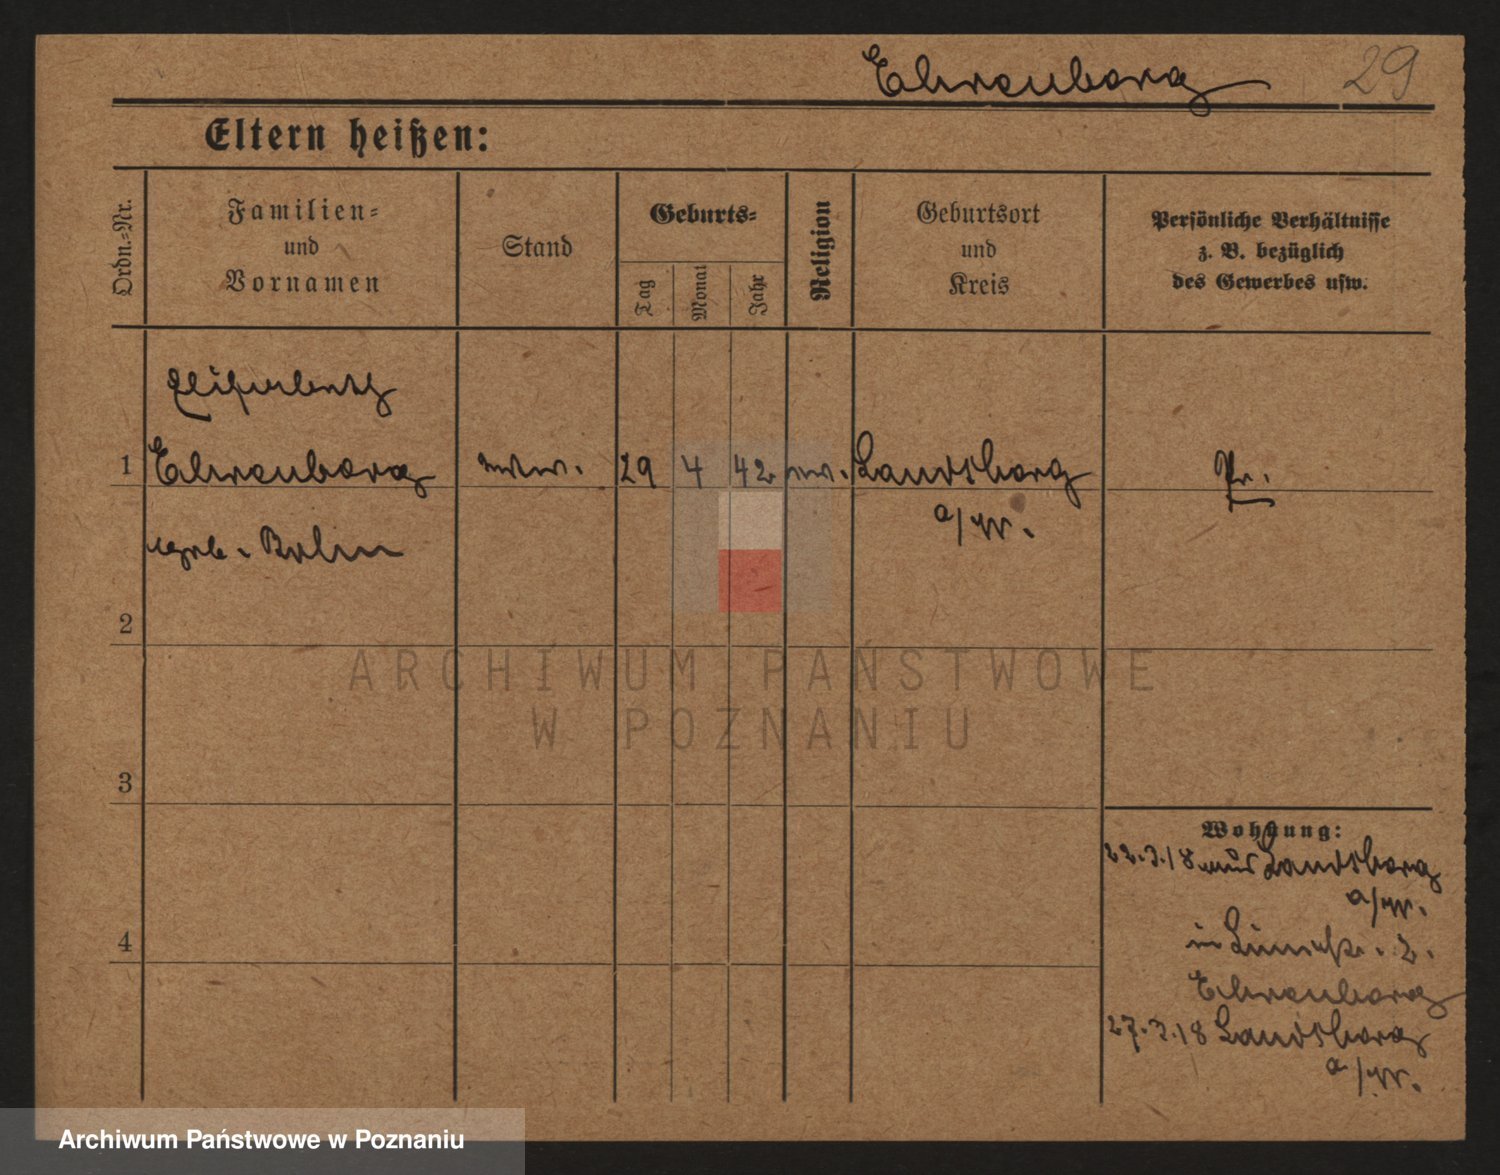 Ehrenberg 29
Eltern heißen:
Ordn.=Nr.
Familien=
und
Vornamen
Stand
Geburts=
Tag
Monat
Jahr
Religion
Geburtsort
und
Kreis
Persönliche Verhältnisse
z. B. bezüglich
des Gewerbes usw.
Elisabeth
1 Ehrenberg 29 4 42 ev. Landsberg Pr.
a/W.
geb.
2
3
4
Wohnung:
22.3.18 aus Landsberg
a/W.
in 2.
Ehrenberg
27.3.18 Landsberg
a/W.
ARCHIWUM PAŃSTWOWE
W POZNANIU
Archiwum Państwowe w Poznaniu